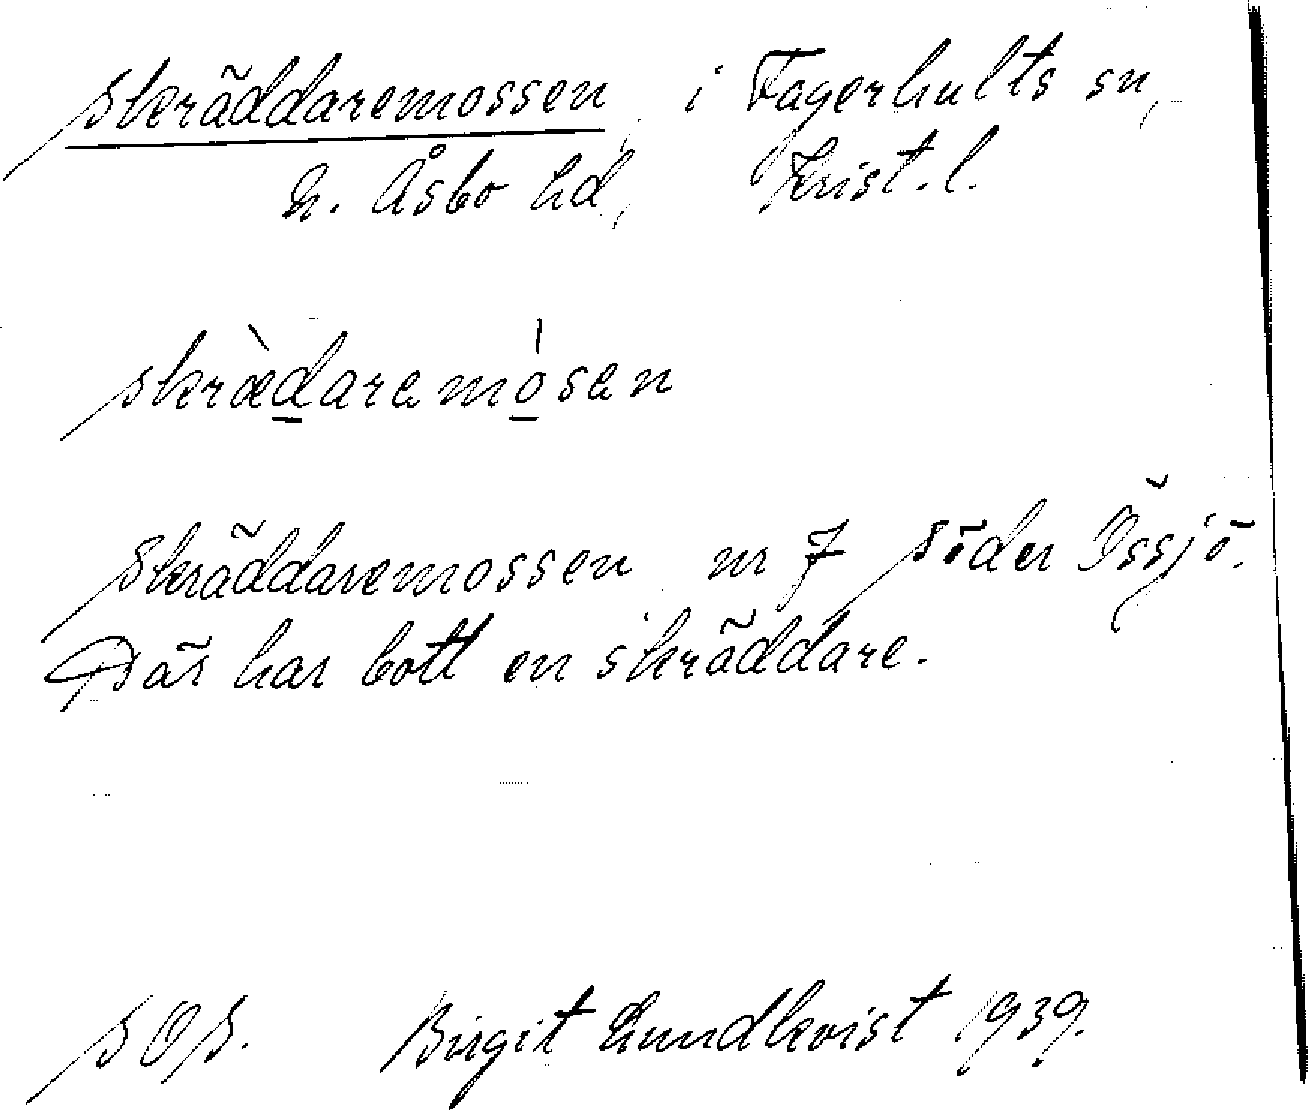 Skräddaremossen, i Fagerhults sn,
N. Åsbo hd, Krist. l.
skræ̀daremósen
Skräddaremossen nr 7 Söder Össjö.
Där har bott en skräddare.
SOS. Birgit Lundkvist 1939.